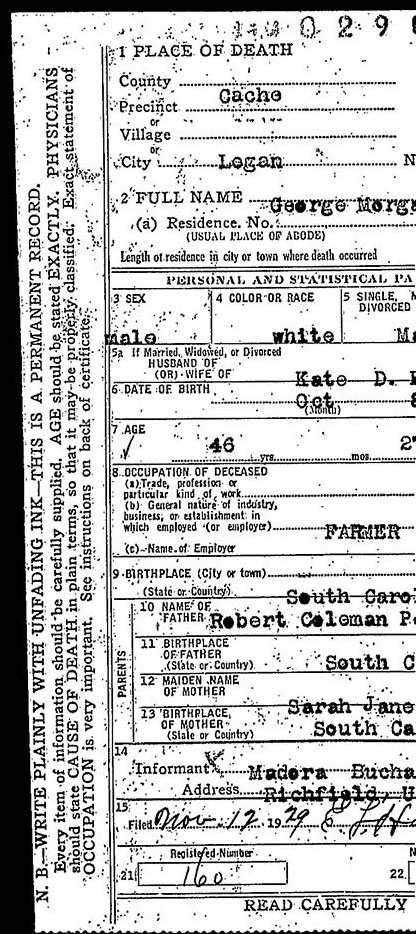 0 2 9
1 PLACE OF DEATH
County Cache
Precinct
or
Village
or
City Logan N
2 FULL NAME George Morga
(a) Residence. No.
(USUAL PLACE OF ABODE)
Length of residence in city or town where death occurred
PERSONAL AND STATISTICAL PA
3 SEX 4 COLOR OR RACE 5 SINGLE, M
DIVORCED
male white Ma
5a If Married, Widowed, or Divorced
HUSBAND OF
(OR) WIFE OF Kate D.
6 DATE OF BIRTH Oct 8
(Month)
7 AGE
46 yrs. mos. 27
8 OCCUPATION OF DECEASED
(a) Trade, profession or
particular kind of work
(b) General nature of industry,
business, or establishment in
which employed (or employer) FARMER
(c) Name of Employer
9 BIRTHPLACE (City or town)
(State or Country) South Caro
PARENTS
10 NAME OF
FATHER Robert Coleman P
11 BIRTHPLACE
OF FATHER
(State or Country) South C
12 MAIDEN NAME
OF MOTHER Sarah Jane
13 BIRTHPLACE
OF MOTHER South Ca
(State or Country)
14
Informant Madora Bucha
Address Richfield, U
15
Filed Nov. 12 1929
Registered Number N
21 160 22
READ CAREFULLY
N. B.—WRITE PLAINLY WITH UNFADING INK—THIS IS A PERMANENT RECORD.
Every item of information should be carefully supplied. AGE should be stated EXACTLY. PHYSICIANS
should state CAUSE OF DEATH in plain terms, so that it may be properly classified. Exact statement of
OCCUPATION is very important. See instructions on back of certificate.